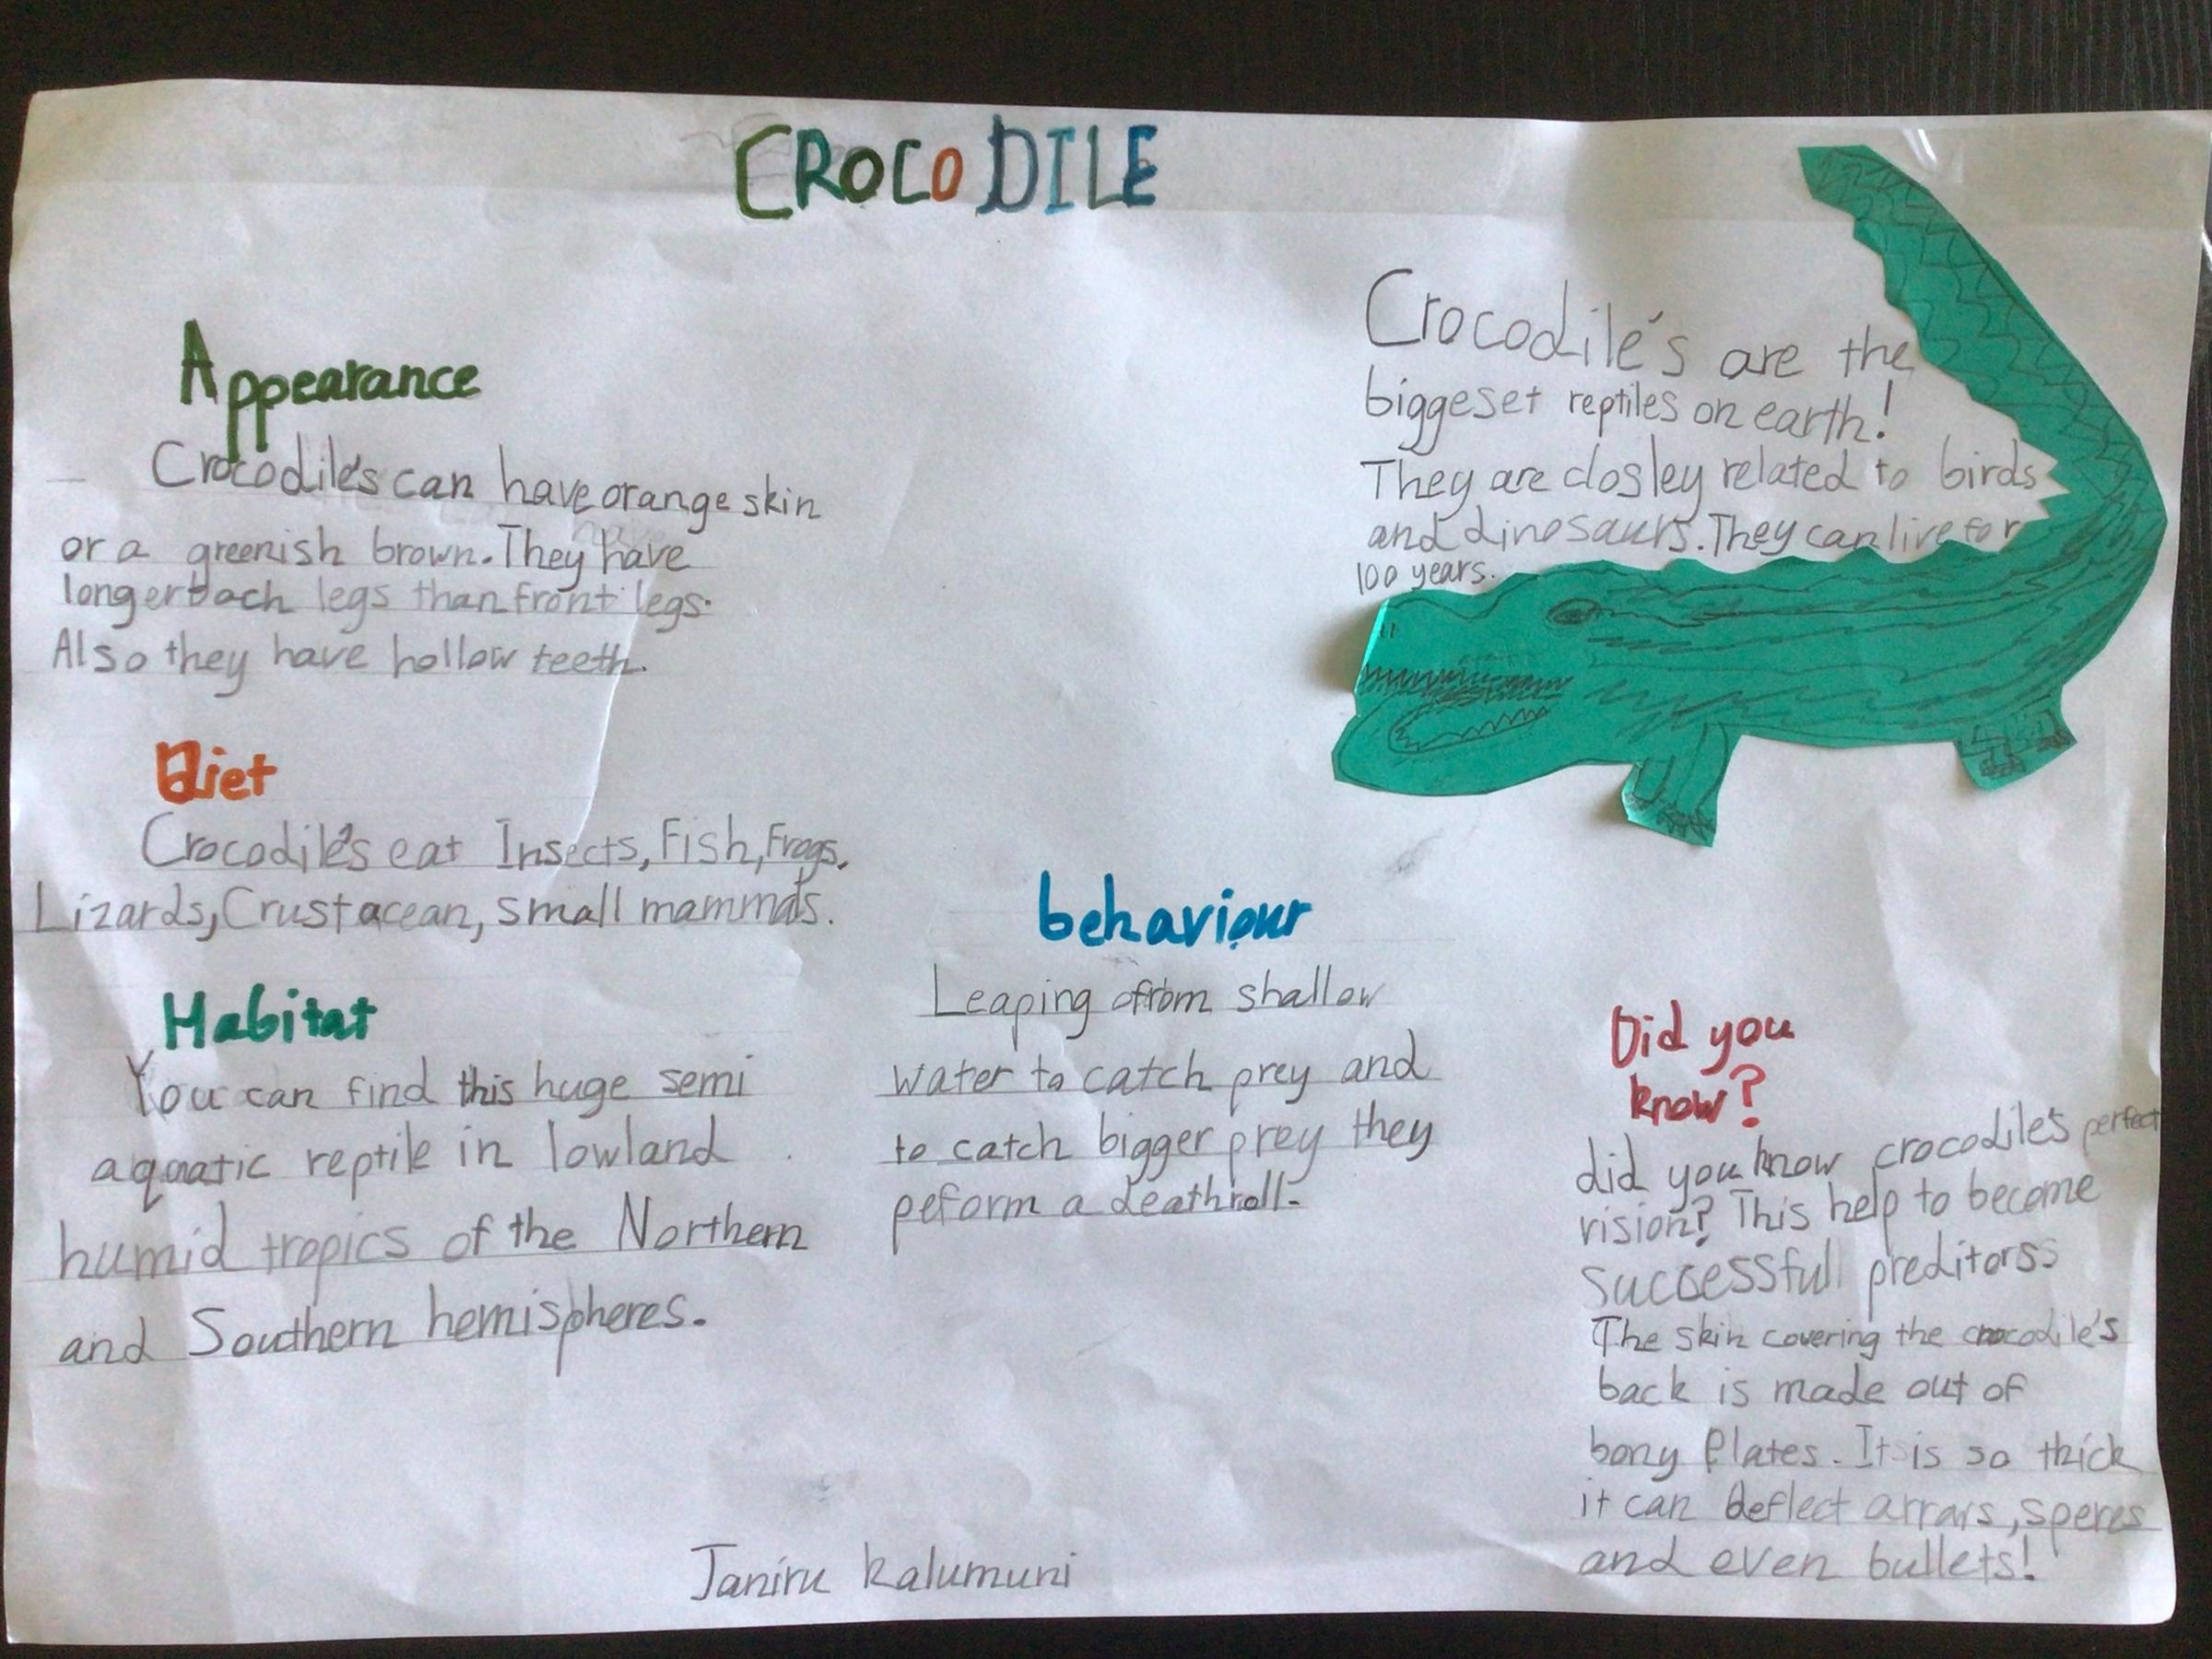 CROCODILE
Crocodile's are the
biggeset reptiles on earth!
They are closley related to birds
and dinosaurs. They can live for
100 years.
Appearance
Crocodile's can have orange skin
or a greenish brown. They have
longer bach legs than front legs.
Also they have hollow teeth.
Diet
Crocodile's eat Insects, Fish, Frogs,
Lizards, Crustacean, small mammals.
Habitat
You can find this huge semi
aquatic reptile in lowland
humid tropics of the Northern
and Southern hemispheres.
behaviour
Leaping from shallow
water to catch prey and
to catch bigger prey they
peform a deathroll.
Did you
know?
did you know crocodile's perfect
vision? This help to become
successfull preditorss
The skin covering the crocodile's
back is made out of
bony Plates. It is so thick
it can deflect arrars, speres
and even bullets!
Janiru kalumuni